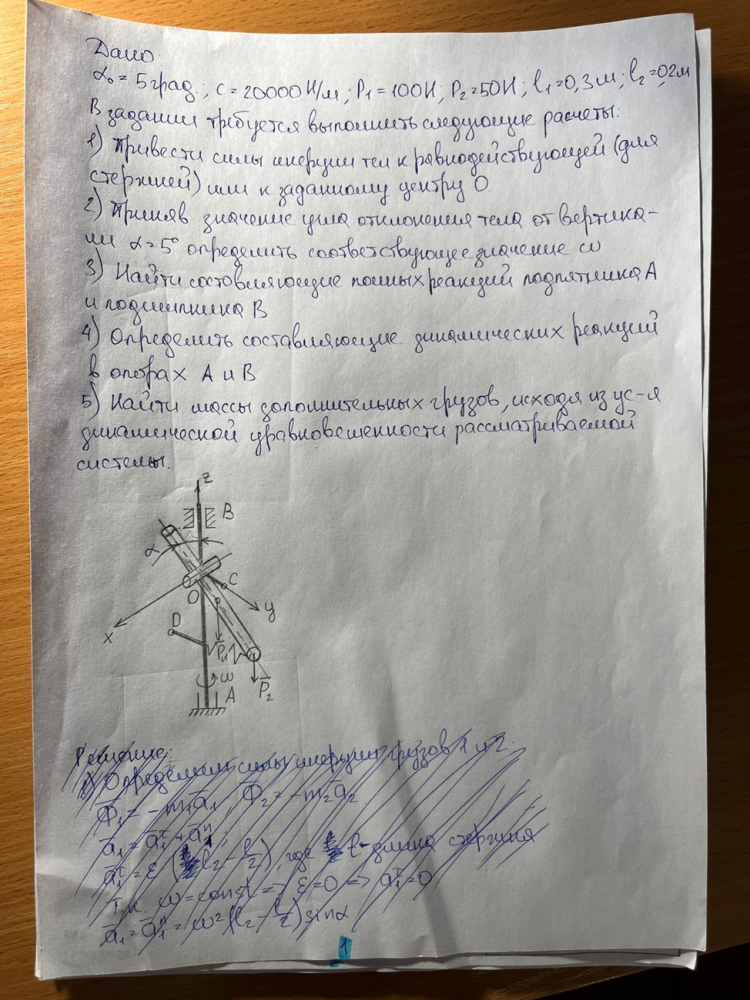 Дано
α₀ = 5 град., c = 20000 Н/м; P₁ = 100Н; P₂ = 50Н; l₁ = 0,3 м; l₂ = 0,2 м
В задании требуется выполнить следующие расчеты:
1) Привести силы инерции тел к равнодействующей (для
стержней) или к заданному центру О.
2) Приняв значение угла отклонения тела от вертика-
ли α = 5° определить соответствующее значение ω
3) Найти составляющие полных реакций подпятника А
и подшипника В
4) Определить составляющие динамических реакций
в опорах А и В
5) Найти массы дополнительных грузов, исходя из ус-я
динамической уравновешенности рассматриваемой
системы.
z
B
α
O
C
x
y
D
P₁
ω
A
P₂
Решение:
1) Определим силы инерции грузов 1 и 2.
Ф̅₁ = -m₁a̅₁, Ф̅₂ = -m₂a̅₂
a̅₁ = a̅₁ᵗ + a̅₁ⁿ;
a₁ᵗ = ε (l₂ - l/2), где l - длина стержня
Т.к. ω = const => ε = 0 => a₁ᵗ = 0
a̅₁ = a̅₁ⁿ = ω² (l₂ - l/2) sinα
1